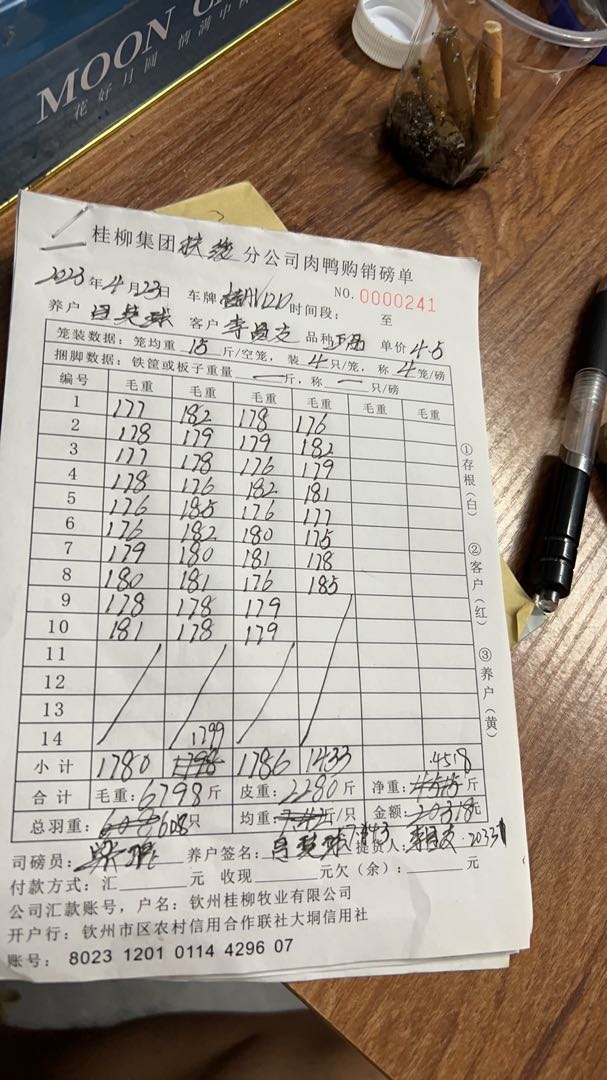 MOON
花好月圆 情满中
桂柳集团 分公司肉鸭购销磅单
2023年4月23日 车牌 时间段: 至
NO.0000241
养户 客户 李 品种 单价4.5
笼装数据:笼均重 15 斤/空笼,装 4 只/笼,称 4 笼/磅
捆脚数据:铁筐或板子重量 — 斤,称 — 只/磅
编号 毛重 毛重 毛重 毛重 毛重 毛重
1 177 182 178 176
2 178 179 179 182
3 177 178 176 179
4 178 176 182 181
5 176 185 176 177
6 176 182 180 175
7 179 180 181 178
8 180 181 176 185
9 178 178 179
10 181 178 179
11
12
13
14 1799
小计 1780 1798 1786 1433 4518
合计 毛重:6798斤 皮重:2280斤 净重: 斤
总羽重: 608只 均重: 斤/只 金额:20318元
司磅员: 养户签名: 7.43 提货人: 20331
付款方式:汇 元 收现 元欠(余): 元
公司汇款账号,户名:钦州桂柳牧业有限公司
开户行:钦州市区农村信用合作联社大垌信用社
账号: 8023 1201 0114 4296 07
①存根(白)
②客户(红)
③养户(黄)